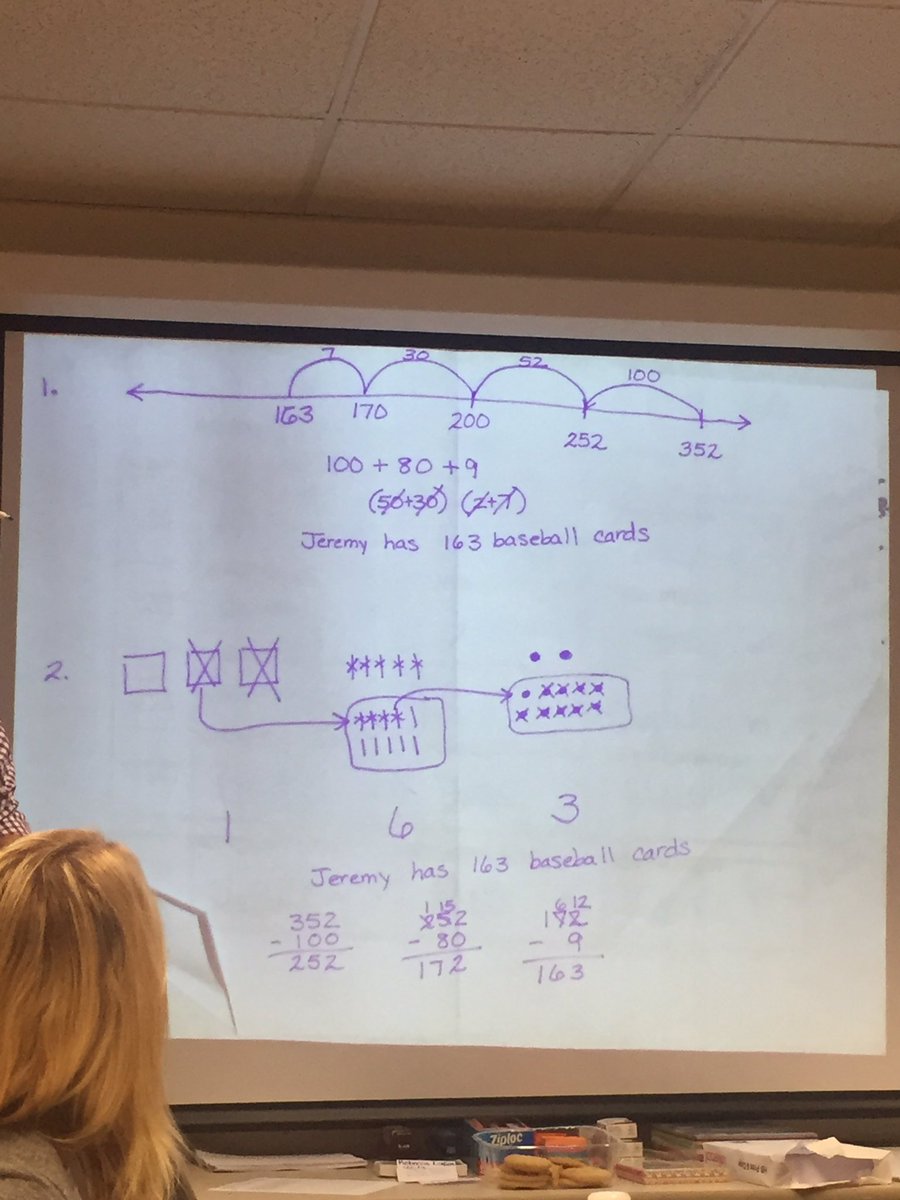 1.
7 30 52 100
163 170 200 252 352
100 + 80 + 9
(50+30) (2+7)
Jeremy has 163 baseball cards
2.
1 6 3
Jeremy has 163 baseball cards
1 15 6 12
352 252 172
- 100 - 80 - 9
252 172 163
Ziploc